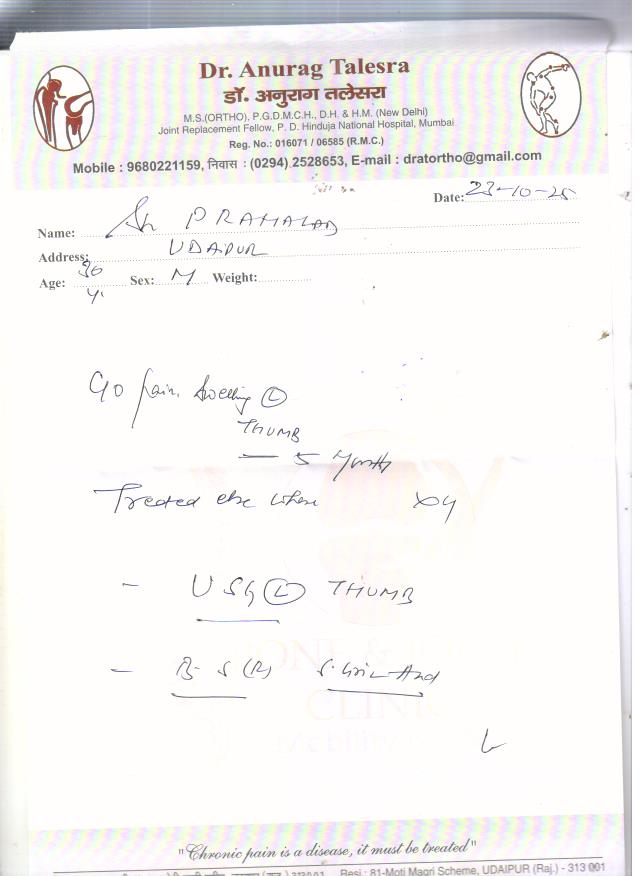 Dr. Anurag Talesra
डॉ. अनुराग तलेसरा
M.S.(ORTHO), P.G.D.M.C.H., D.H. & H.M. (New Delhi)
Joint Replacement Fellow, P. D. Hinduja National Hospital, Mumbai
Reg. No.: 016071 / 06585 (R.M.C.)
Mobile : 9680221159, निवास : (0294) 2528653, E-mail : dratortho@gmail.com
Date: 23-10-25
Name: Sh PRAHALAD
Address: UDAIPUR
Age: 36 Yr Sex: M Weight:
C/o pain, swelling (L)
THUMB
— 5 Month
Treated else where
- USG (L) THUMB
- B- S (R) S.
CLINIC
"Chronic pain is a disease, it must be treated"
Resi : 81-Moti Magri Scheme, UDAIPUR (Raj.) - 313 001